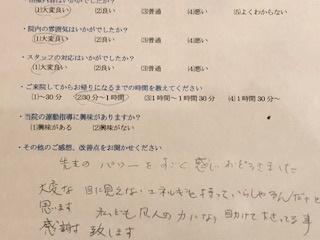 (1)大変良い (2)良い (3)普通 (4)悪い (5)よくわからない
・院内の雰囲気はいかがでしたか?
(1)大変良い (2)良い (3)普通 (4)悪い
・スタッフの対応はいかがでしたか?
(1)大変良い (2)良い (3)普通 (4)悪い
・ご来院してからお帰りになるまでの時間を教えてください
(1)~30分 (2)30分~1時間 (3)1時間~1時間30分 (4)1時間30分~
・当院の運動指導に興味がありますか?
(1)興味がある (2)興味がない
・その他のご感想、改善点をお聞かせください
先生の パワーをすごく感じおどろきました
大変な 目に見えない エネルギーを持っていらしゃるんだなと
思います 私ども凡人の力になり 助けて下さってる事
感謝 致します